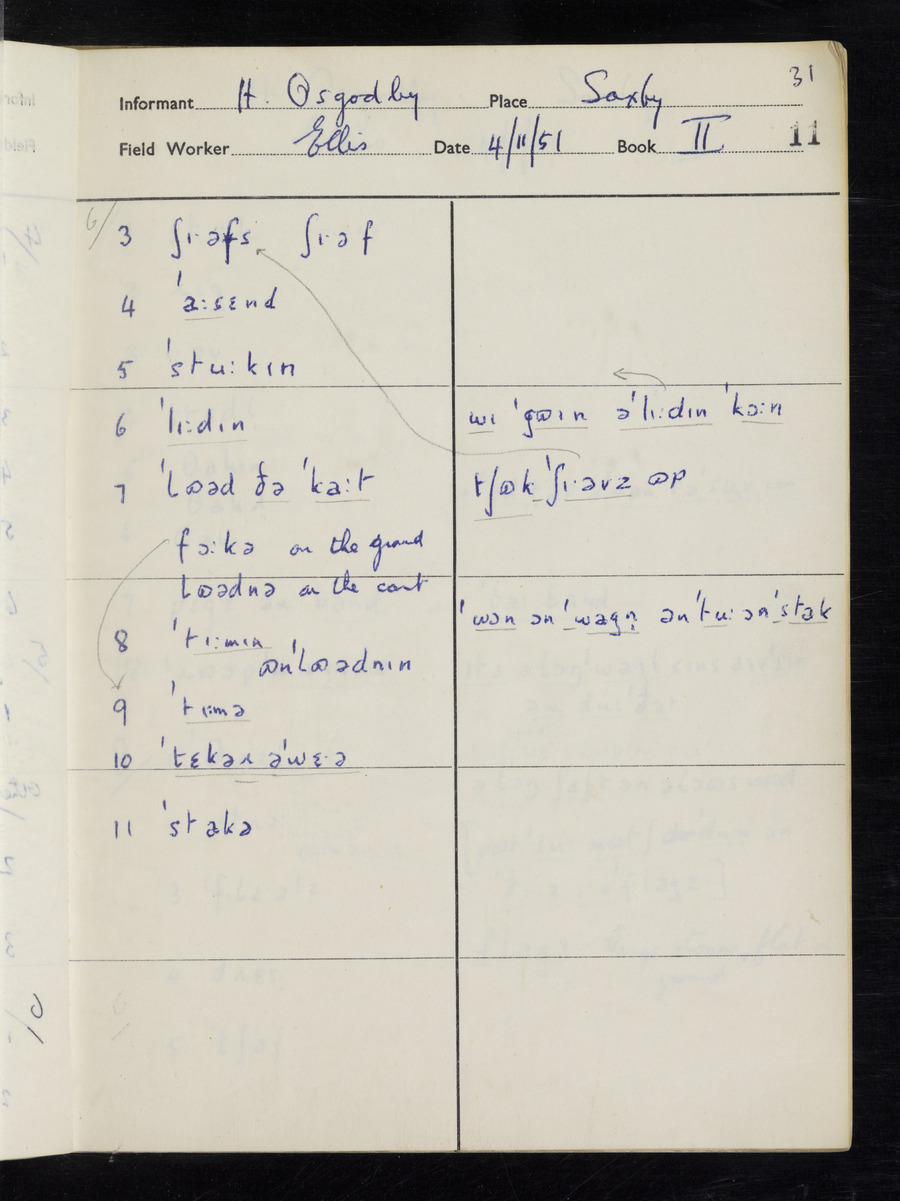 31
Informant H. Osgodby Place Saxby
Field Worker Ellis Date 4/11/51 Book II 11
6/ 3 ʃɪ·əfs ʃɪ·əf
4 ˈa:sɛnd
5 ˈstu:kɪn
6 ˈlɪ:dɪn wɪ ˈgɷɪn əˈlɪ:dɪn ˈkɔ:n
7 ˈlɷəd ðə ˈka:t tʃɷk ˈʃɪ·əvz ɷp
fɔ:kə on the ground
lɷədnə on the cart
8 ˈtɪ:mɪn ˈwɔn ənˈwagn̩ ənˈtu: ənˈstak
ɷnˈlɷədnɪn
9 ˈtɪ:mə
10 ˈtɛkəɹ əˈwɛ·ə
11 ˈstakə
6/